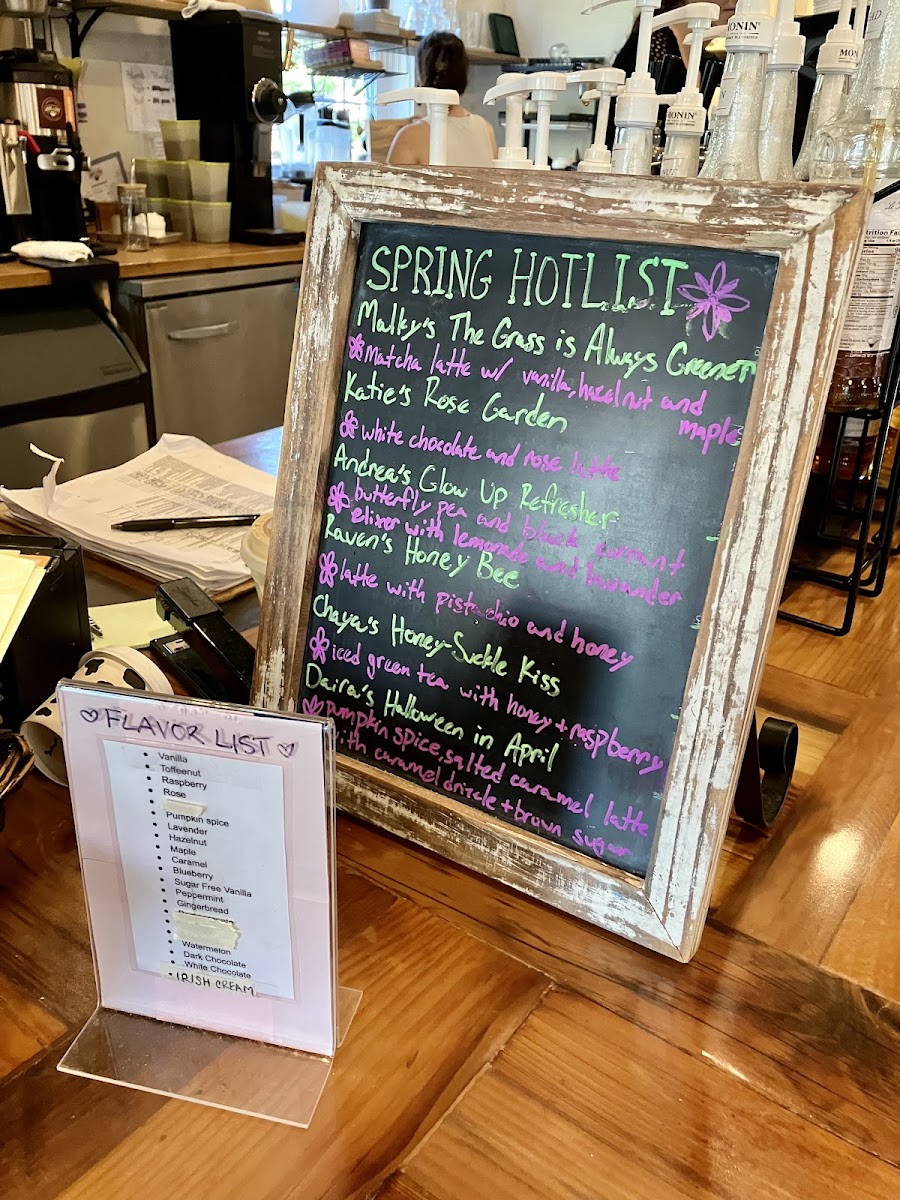 SPRING HOTLIST
Malky's The Grass is Always Greener
Matcha latte w/ vanilla, hazelnut and
maple
Katie's Rose Garden
white chocolate and rose latte
Andrea's Glow Up Refresher
butterfly pea and black currant
elixer with lemonade and lavander
Raven's Honey Bee
latte with pistachio and honey
Chaya's Honey-Suckle Kiss
iced green tea with honey + raspberry
Daira's Halloween in April
pumpkin spice, salted caramel latte
with caramel drizzle + brown sugar
FLAVOR LIST
• Vanilla
• Toffeenut
• Raspberry
• Rose
• Pumpkin spice
• Lavender
• Hazelnut
• Maple
• Caramel
• Blueberry
• Sugar Free Vanilla
• Peppermint
• Gingerbread
• Watermelon
• Dark Chocolate
• White Chocolate
• IRISH CREAM
MONIN
MONIN
MONIN